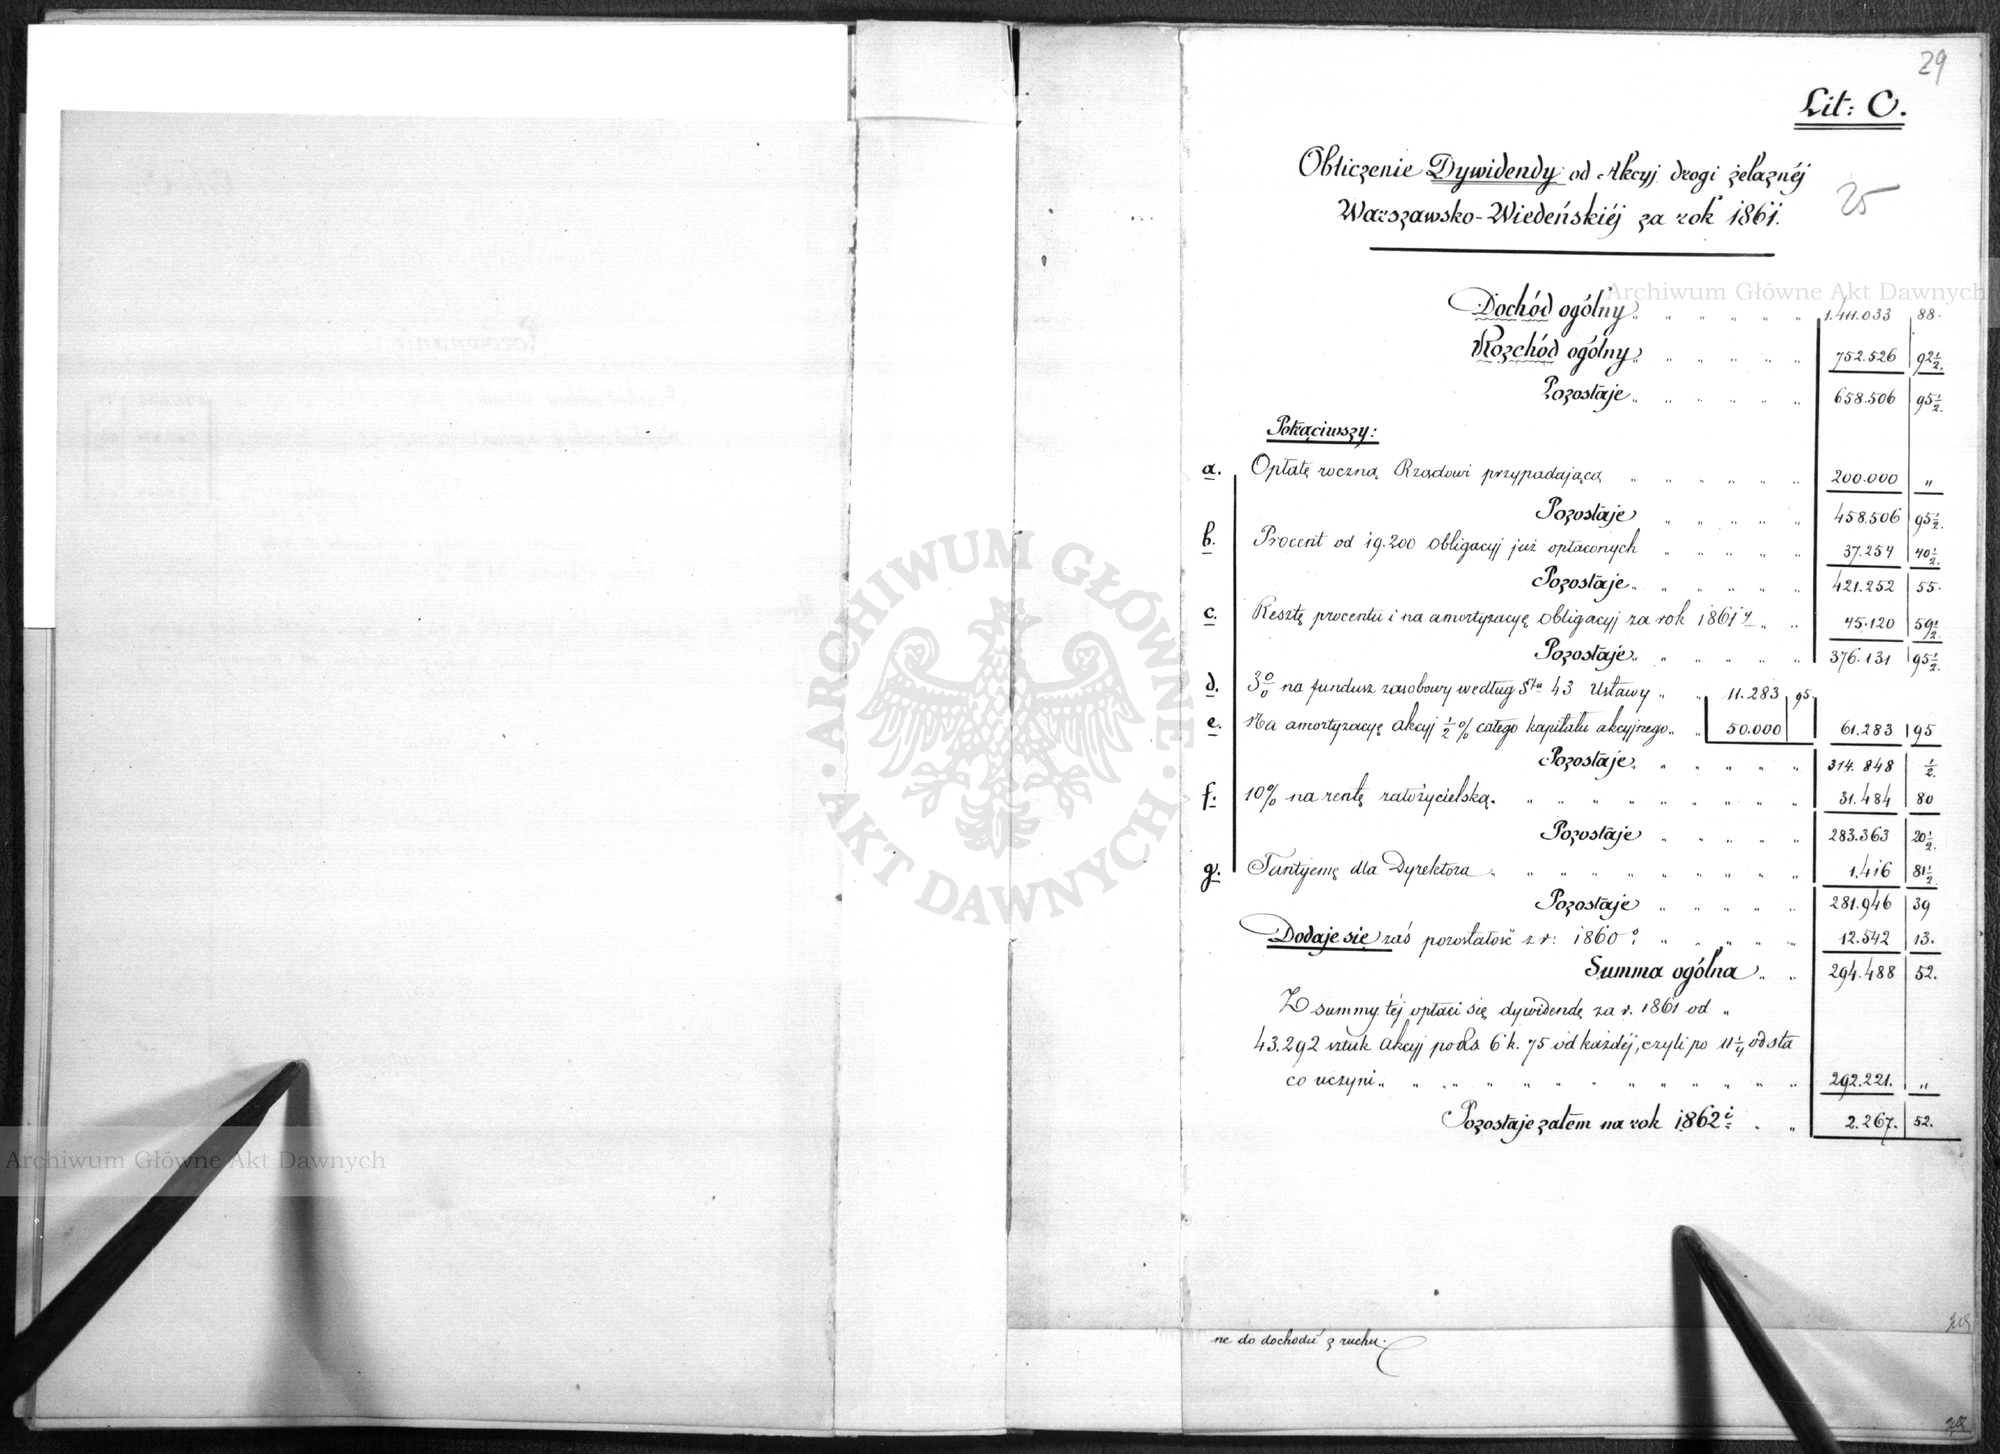 29
Lit: C.
Obliczenie Dywidendy od Akcyj drogi żelaznéj
25
Warszawsko-Wiedeńskiéj za rok 1861.
Archiwum Główne Akt Dawnych
Dochód ogólny 1.411.033 88.
Rozchód ogólny 752.526 92 1/2.
Pozostaje 658.506 95 1/2.
Potrąciwszy:
a. Opłatę roczną Rządowi przypadającą 200.000 "
Pozostaje 458.506 95 1/2.
b. Procent od 19.200 obligacyj już opłaconych 37.254 40 1/2.
Pozostaje 421.252 55.
c. Resztę procentu i na amortyzacyę obligacyj za rok 1861 45.120 59 1/2.
Pozostaje 376.131 95 1/2.
d. 3 % na fundusz zasobowy według § 43 Ustawy 11.283 95.
e. Na amortyzacyę akcyj 1/2 % całego kapitału akcyjnego 50.000 61.283 95
Pozostaje 314.848 1/2.
f. 10% na rentę założycielską 31.484 80
Pozostaje 283.363 20 1/2.
g. Tantjemę dla Dyrektora 1.416 81 1/2.
Pozostaje 281.946 39
Dodaje się zaś pozostałość z r: 1860 12.542 13.
Summa ogólna 294.488 52.
Z summy téj opłaci się dywidendę za r. 1861 od "
43.292 sztuk akcyj po Rs. 6 k. 75 od każdéj, czyli po 11 1/4 od sta
co uczyni 292.221. "
Pozostaje zatem na rok 1862 2.267. 52.
ne do dochodu z ruchu.
ARCHIWUM GŁÓWNE
AKT DAWNYCH
Archiwum Główne Akt Dawnych